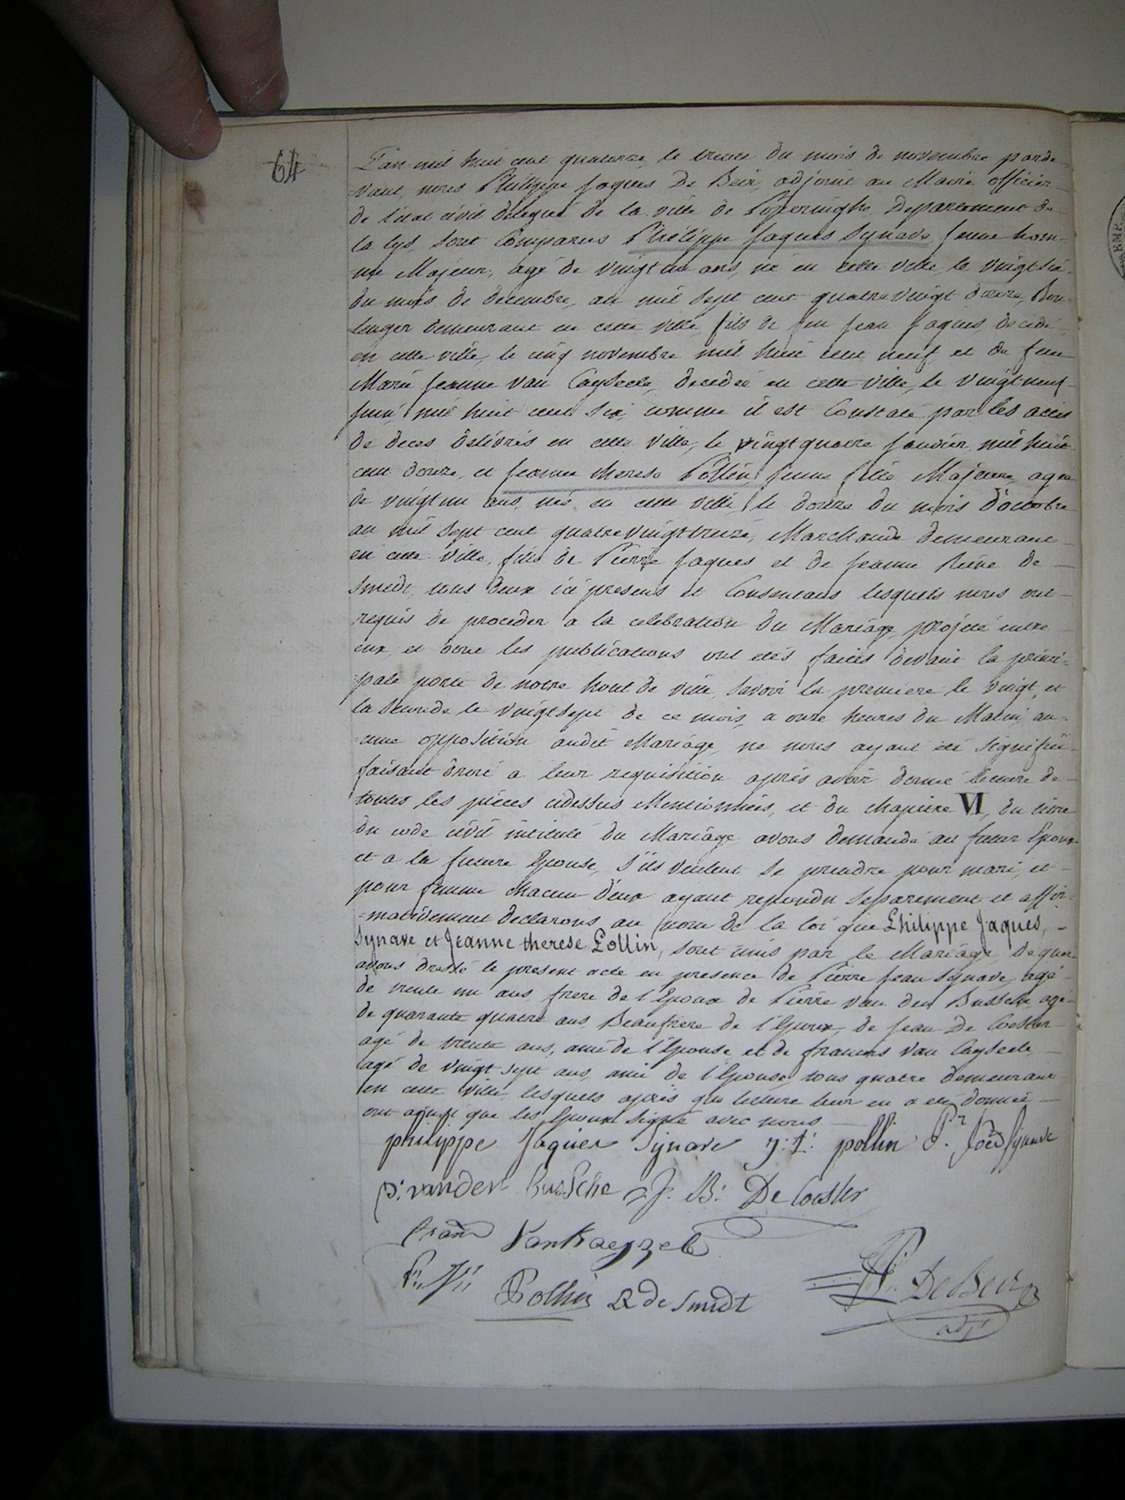 64
L'an mil huit cent quatorze le treize du mois de novembre parde
vant nous Philippe Jaques De Beir, adjoint au Maire officier
de l'état civil délégué de la ville de Poperinghe, Departement de
la lys sont Comparus Philippe Jaques Synave jeune hom-
me Majeur, agé de vingt un ans, né en cette ville, le vingt six
du mois de decembre, an mil sept cent quatre vingt douze, Bou-
langer demeurant en cette ville, fils de feu jean Jaques decedé
en cette ville, le cinq novembre mil huit cent neuf et de feue
Marie Jeanne van Cayseele, decedée en cette ville, le vingt neuf
mil huit cent six, comme il est Constaté par les actes
de deces delivrés en cette ville, le vingt quatre janvier mil huit
cent douze, et jeanne therese Pollin, jeune fille Majeure agée
de vingt un ans, née en cette ville, le douze du mois d'octobre
an mil sept cent quatre vingt treize, Marchande demeurant
en cette ville, fille de Pierre Jaques et de jeanne de
Smedt, tous deux ici presens et Consentans lesquels nous ont
requis de proceder a la celebration du Mariage projeté entre
eux et dont les publications ont etés faites devant la princi-
pale porte de notre hotel de ville, savoir la premiere le vingt, et
la seconde le vingt sept de ce mois, a onze heures du Matin, au-
cune opposition audit Mariage, ne nous ayant été signifiée
faisant droit a leur requisition après avoir donné lecture de
toutes les pièces cidessus Mentionnées, et du chapitre VI, du titre
du code civil intitulé du Mariage avons demandé au futur Epoux
et a la future Epouse, s'ils veulent se prendre pour mari, et
pour femme chacun d'eux ayant repondu separement et affir-
mativement declarons au nom de la loi que Philippe Jaques,
Synave et Jeanne therese Pollin, sont unis par le Mariage De quoi
avons dressé le present acte en presence de Pierre Jean Synave, agé
de trente un ans frere de l'Epoux de Pierre van den Bussche, agé
de quarante quatre ans Beaufrere de l'Epoux, de jean De Coster
agé de trente ans, ami de l'Epouse et de francois van Cayseele
agé de vingt sept ans, ami de l'Epouse tous quatre demeurant
en cette ville, lesquels après que lecture leur en a été donnée
ont ainsi que les Epoux signé avec nous
philippe Jaques Synave J: T: pollin P.r Synave
p: vanden Bussche J: B: De Coster
fran VanKaeyzele
Pollin de Smedt De Beir
adjt